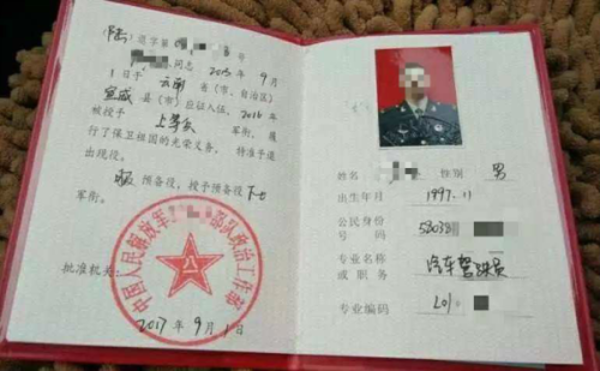 (陆)退字第 号
同志 2015年9月
1日于云南省(市、自治区)
宣威县(市)应征入伍,2016年
被授予上等兵军衔,履
行了保卫祖国的光荣义务,特准予退
出现役。
服预备役,授予预备役下士
军衔。
中国人民解放军 部队政治工作部
批准机关:
2017年9月1日
姓名 性别 男
出生年月 1997.11
公民身份
号码
专业名称 汽车驾驶员
或职务
专业编码